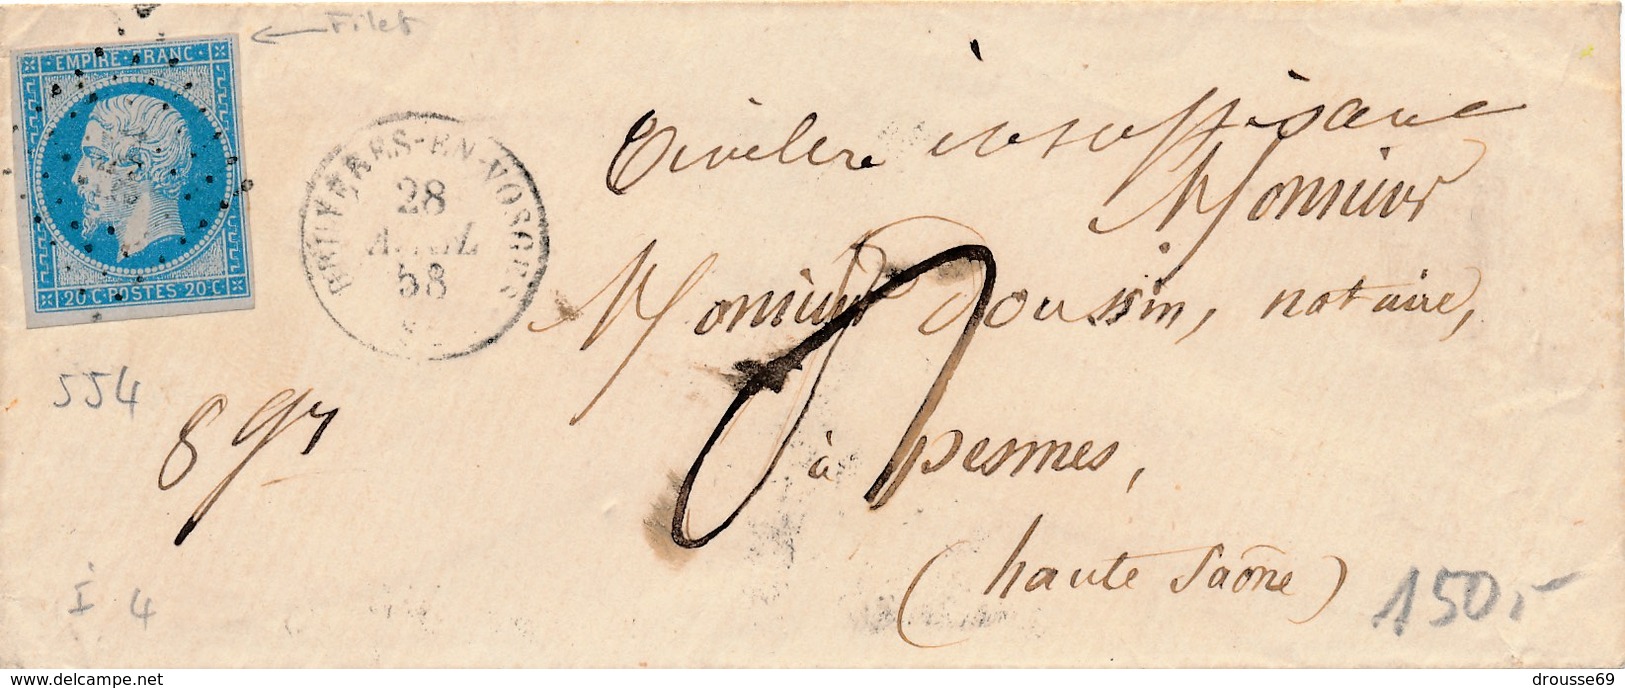 Filet
EMPIRE FRANC
20 C POSTES 20 C
BRUYERES-EN-VOSGES
28
AVRIL
58
insuffisance
Monsieur
Monsieur Doussin, notaire,
554
8 gr
à pesmes,
(haute Saône)
I 4
150,-
delcampe.net
drousse69